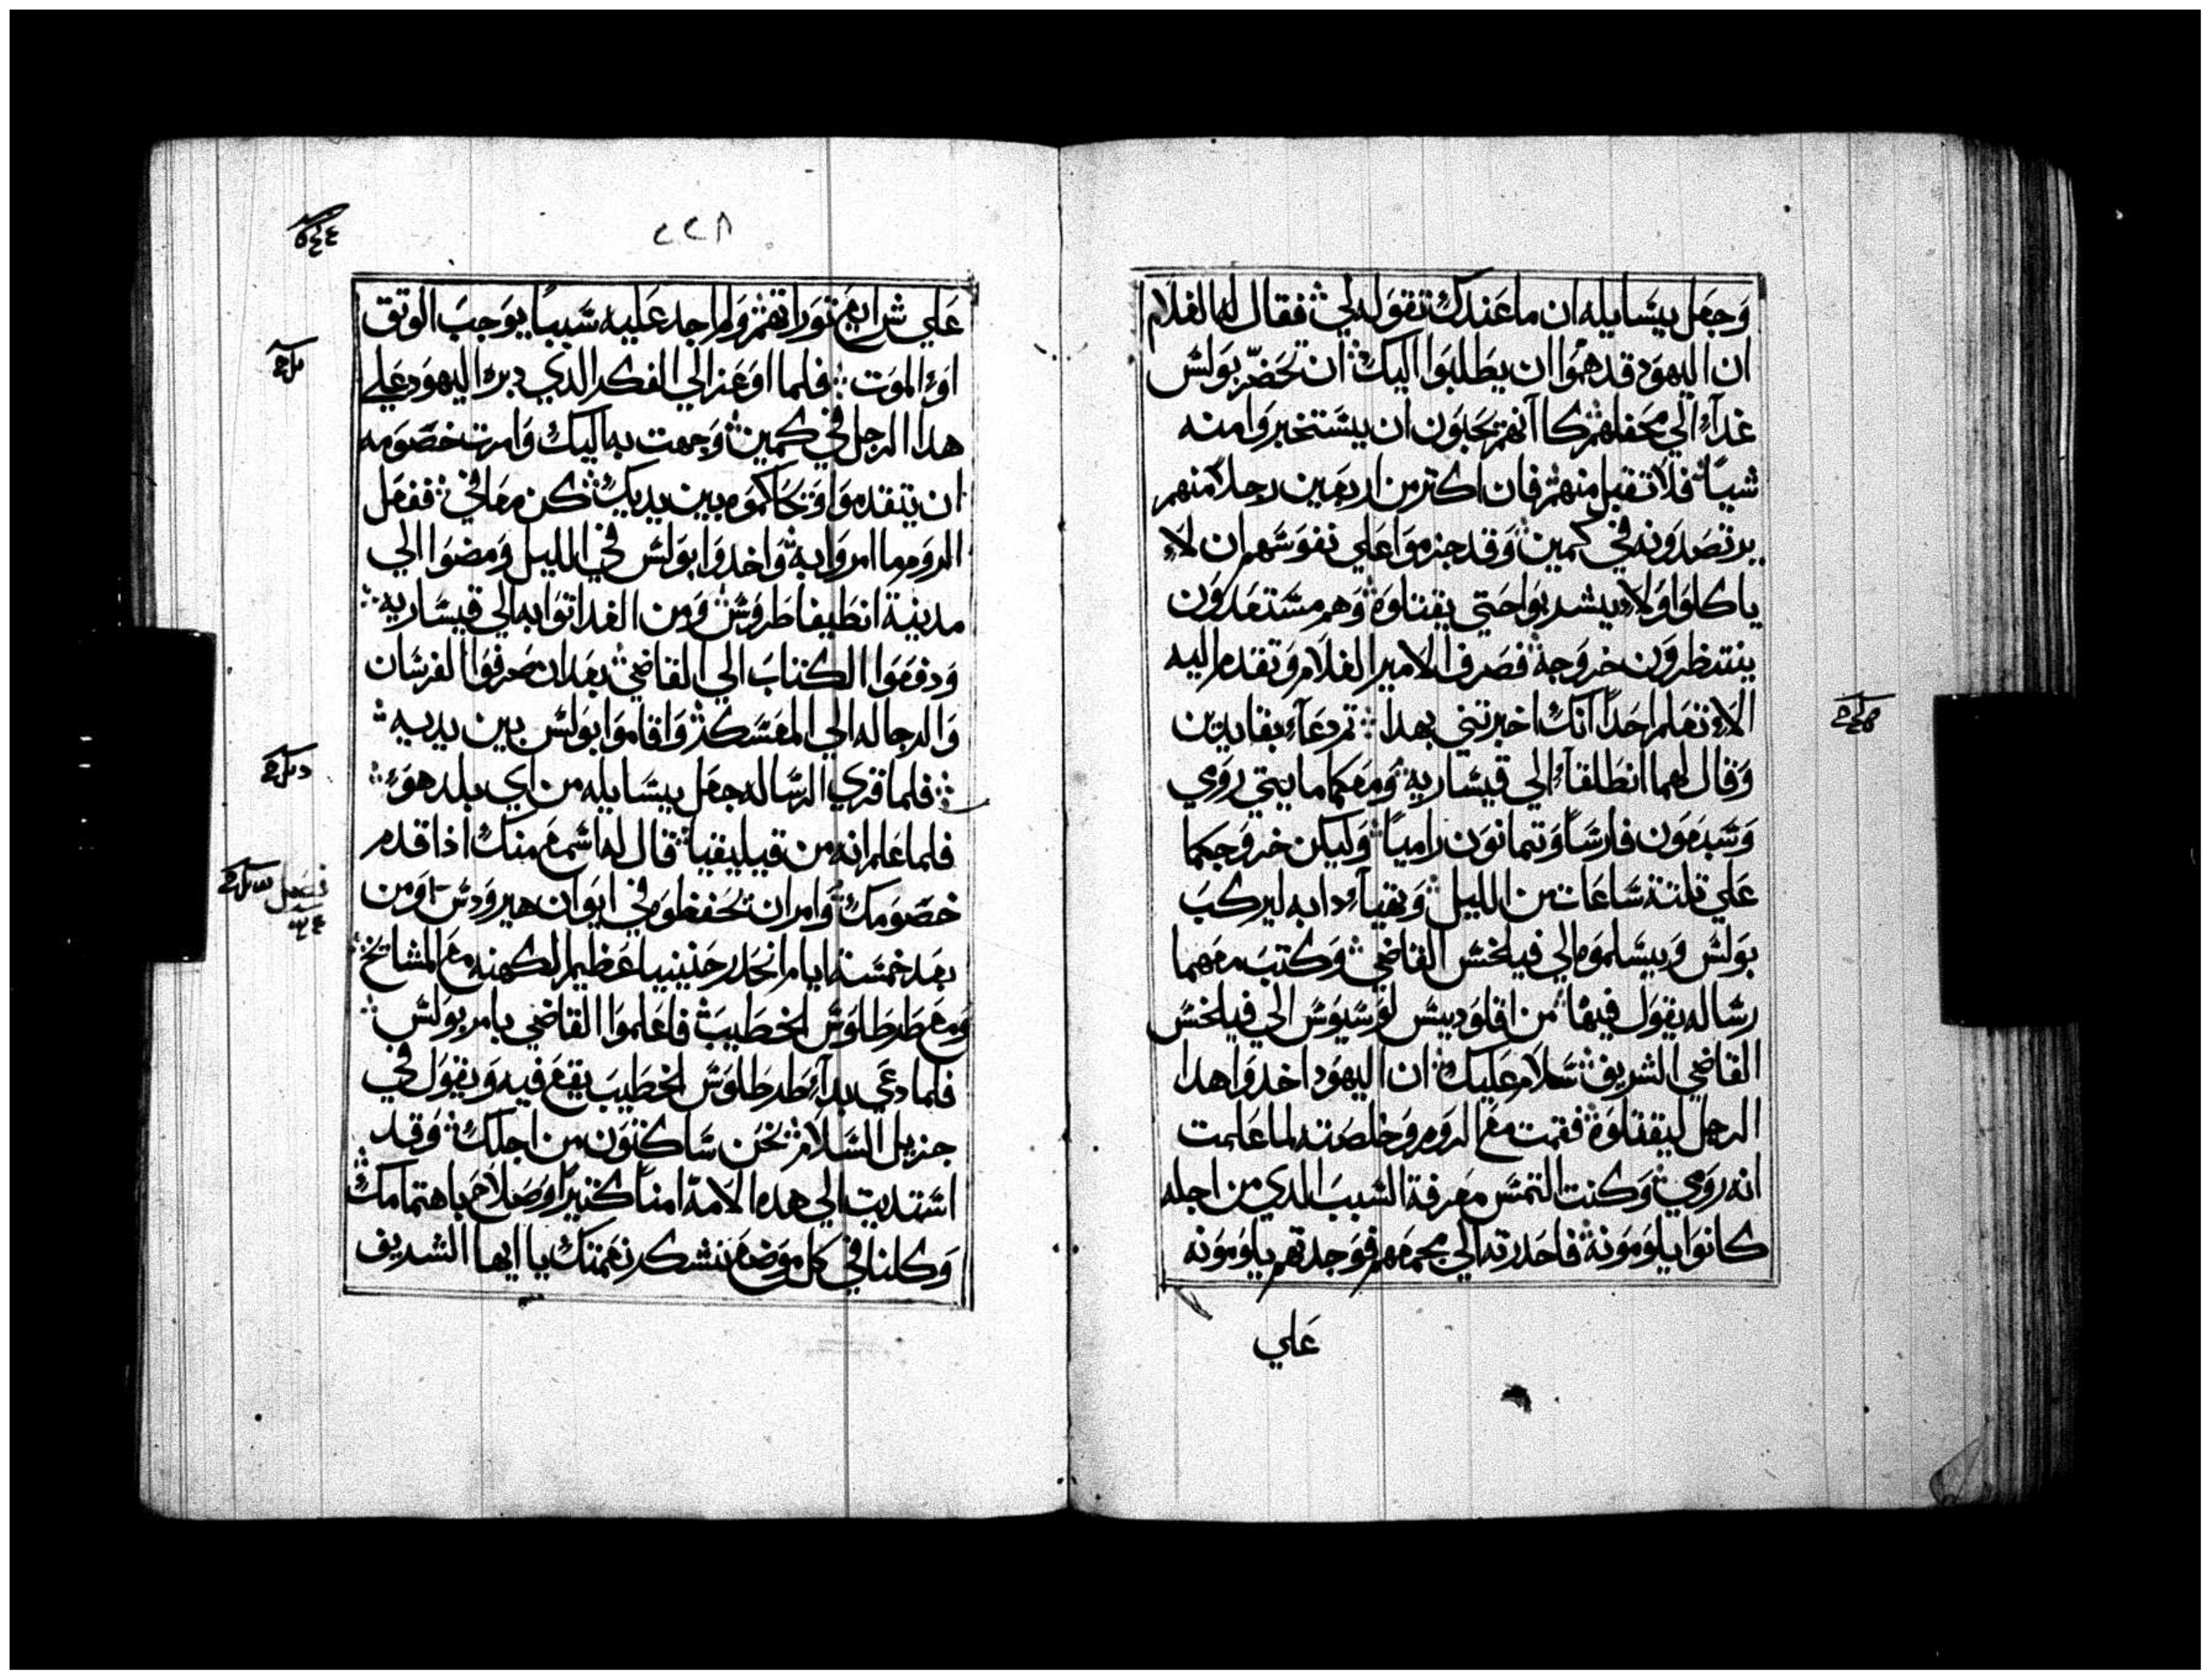 وَجعَل يسَايله ان ما عَندك تقوَله لي فقال له الغلام
ان اليهوَد قد همَوا ان يطَلبَوا اليك ان تحَضر بوَلسَ
غدآء الي محَفلهم كا انهم يحَبوَن ان يسَتخبروَا منه
شياً فلا تقبل منهم فان اكتر من اربعَين رجلاً منهم
يرتصَدوَنه في كمين وَقد جزموَا عَلي نفوَسَهم ان لاء
ياكلوَا وَلا يشربوَا حَتي يقتلوَه وَهم مسَتعَدوَن
ينتظروَن خروَجه فصَرف الامير الغلام وَتقدم اليه
الاء تعَلم احَداً انك اخبرتني بهدا تم دعَاء بقايدين
وَقال لهما انطَلقاء الي قيسَاريه وَمعَكما مايتي روَمي
وَسَبعَوَن فارسَاً وَتمانوَن رامياً وَليكن خروَجكما
عَلي تلتة سَاعَات من الليل وَتهيآء دابه ليركبَ
بوَلسَ وَيسَلموَه الي فيلخسَ القاضي وَكتبَ معَهما
رسَاله يقوَل فيها من اقلوَديسَ لوَسَيوَسَ الي فيلخسَ
القاضي الشريف سَلام عَليك ان اليهوَد اخدوَا هدا
الرجل ليقتلوَه فقمت معَ الروَم وَخلصَته لما عَلمت
انه روَمي وَكنت التمسَ معَرفة السَببَ الدي من اجله
كانوَا يلوَموَنه فاحَدرته الي مجمعَهم فوَجدتهم يلوَموَنه
عَلي
٢٢٨
عَلي شرايعَ توَراتهم وَلم اجد عَليه سَبباً يوَجبَ الوتق
اوَ الموَت فلما اوَعَز الي الفكر الدي دبره اليهوَد عَلي
هدا الرجل في كمين وَجهت به اليك وَامرت خصَوَمه
ان يتقدموَا وَيحَاكموَه بين يديك كن معَافي ففعَل
الروَم ما امروَا به وَاخدوَا بوَلسَ في الليل وَمضوَا الي
مدينة انطَيفاطروَسَ وَمن الغد اتوَا به الي قيسَاريه
وَدفعَوَا الكتابَ الي القاضي بعَد ان صَرفوَا الفرسَان
وَالرجاله الي المعَسَكر وَاقاموَا بوَلسَ بين يديه
فلما قري الرسَاله جعَل يسَايله من اي بلد هوَ
فلما عَلم انه من قيليقيا قال له اسَمعَ منك اذا قدم
خصَوَمك وَامر ان يحَفظوَه في ايوَان هيروَدسَ وَمن
بعَد خمسَة ايام انحَدر حَنينيا عَظيم الكهنه معَ المشايخ
وَمعَ طَرطَلوَسَ الخطَيبَ فاعَلموَا القاضي بامر بوَلسَ
فلما دعَي بدآء طَرطَلوَسَ الخطَيبَ يقعَ فيه وَيقوَل في
جزيل السَلام نحَن سَاكنوَن من اجلك وَقد
اسَتديت الي هده الامة امناً كتيراً وَصَلاحَ باهتمامك
وَكلنا في كل موَضعَ نشكر نعَمتك يا ايها الشريف